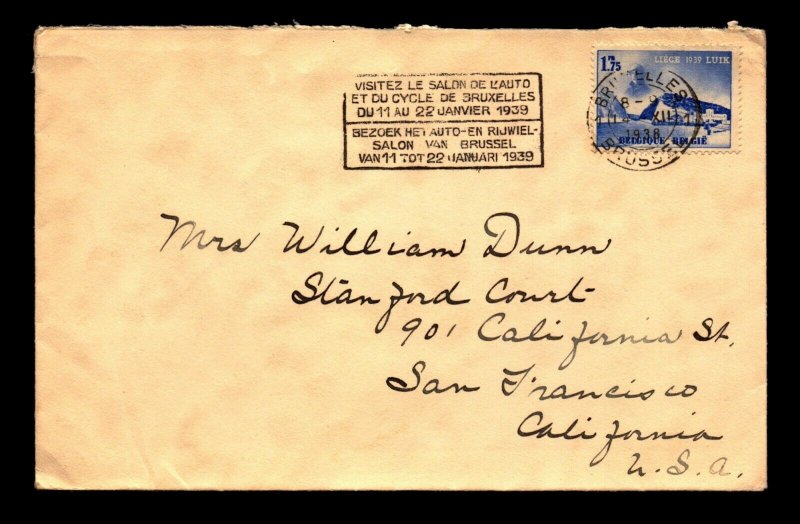 VISITEZ LE SALON DE L'AUTO
ET DU CYCLE DE BRUXELLES
DU 11 AU 22 JANVIER 1939
BEZOEK HET AUTO-EN RIJWIEL-
SALON VAN BRUSSEL
VAN 11 TOT 22 JANUARI 1939
1F75
LIEGE 1939 LUIK
BRUXELLES
XII
1938
BRUSSEL
BELGIQUE BELGIË
Mrs William Dunn
Stanford Court
901 California St.
San Francisco
California
U.S.A.